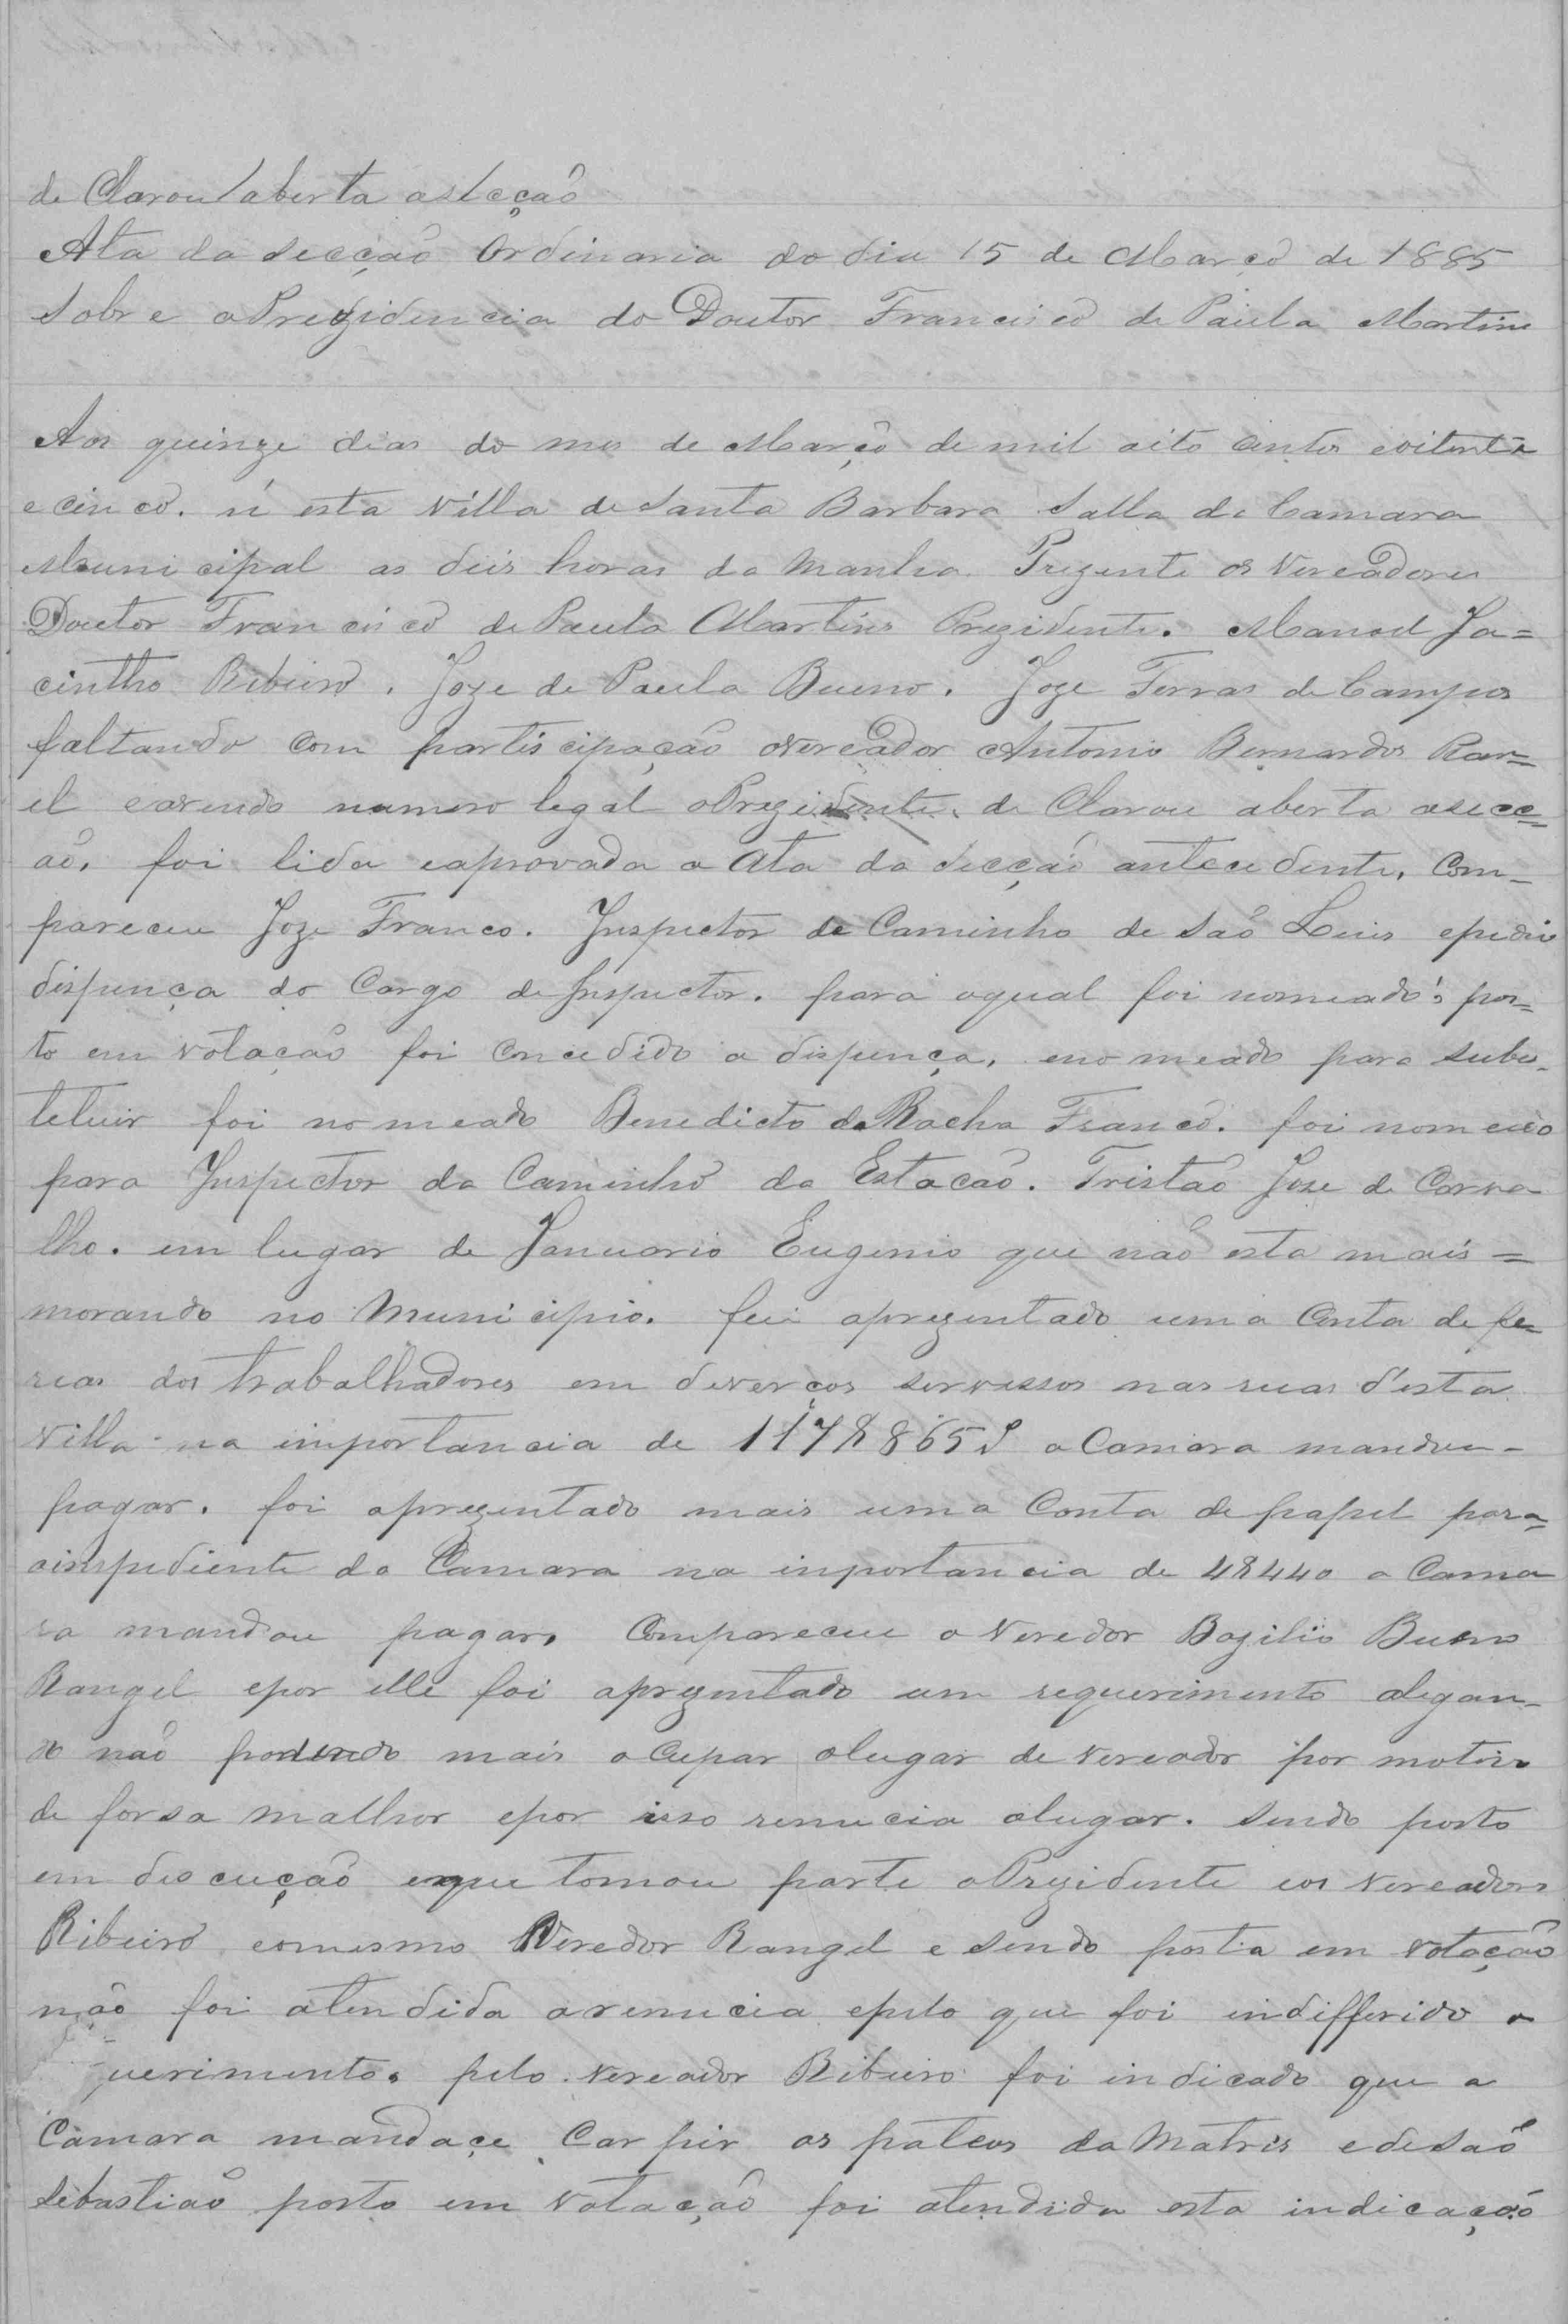 de Clarou aberta asecçaõ
Ata da Secçaõ Ordinaria do dia 15 de Março de 1885
Sobre a Prezidencia do Doutor Francisco de Paula Martins
Aos quinze dias do mes de Março de mil oito centos eoitenta
e cinco. n'esta Villa de Santa Barbara Salla da Camara
Municipal as deis horas da manha Prezente os Vereadores
Doutor Francisco de Paula Martins Prezidente. Manoel Ja=
cintho Ribeiro. Joze de Paula Bueno. Joze Ferras de Campos
faltando com partiscipaçaõ oVereador Antonio Bernardos Ran=
el eavendo numero legal oPrezidente. de Clarou aberta asecc=
aõ. foi lida eaprovada a Ata da Secçaõ antecedente. Com-
pareceu Joze Franco. Inspector de Caminho de Saõ Luis epedio
dispença do Cargo de Inspector. para oqual foi nomeado; pos=
to em votaçaõ foi Concedido a dispença. enomeado para subs-
teluir foi nomeado Benedicto da Rocha Franco. foi nomeado
para Inspector da Caminho da Estacaõ. Tristaõ Joze de Carva-
lho. em lugar de Januario Eugenio que naõ esta mais =
morando no Municipio. foi aprezentado uma Conta de fe=
reas dos trabalhadores em deverços servissos nas ruas d'esta
Villa na importancia de 117$865 a Camara mandou-
pagar. foi aprezentado mais uma Conta de papel para=
oinspediente da Camara na inportancia de 4$440 a Cama
ra mandou pagar. Compareceu o Veredor Bazilio Bueno
Rangel epor elle foi aprezentado um requerimento alegan-
do naõ podendo mais ocupar olugar de Vereador por motivo
de forsa malhor epor isso renucia olugar. Sendo posto
em descuçaõ eque tomou parte oPrezidente eos Vereadores
Ribeiro eomesmo Veredor Rangel e sendo posta em Votaçaõ
não foi atendida arenucia epelo que foi indifferido o
querimento. pelo Vereador Ribeiro foi indicado que a
Camara mandaçe Carpir os pateos da Matris edeSaõ
Sebastiaõ posto em Votaçaõ foi atendida esta indicaçaõ